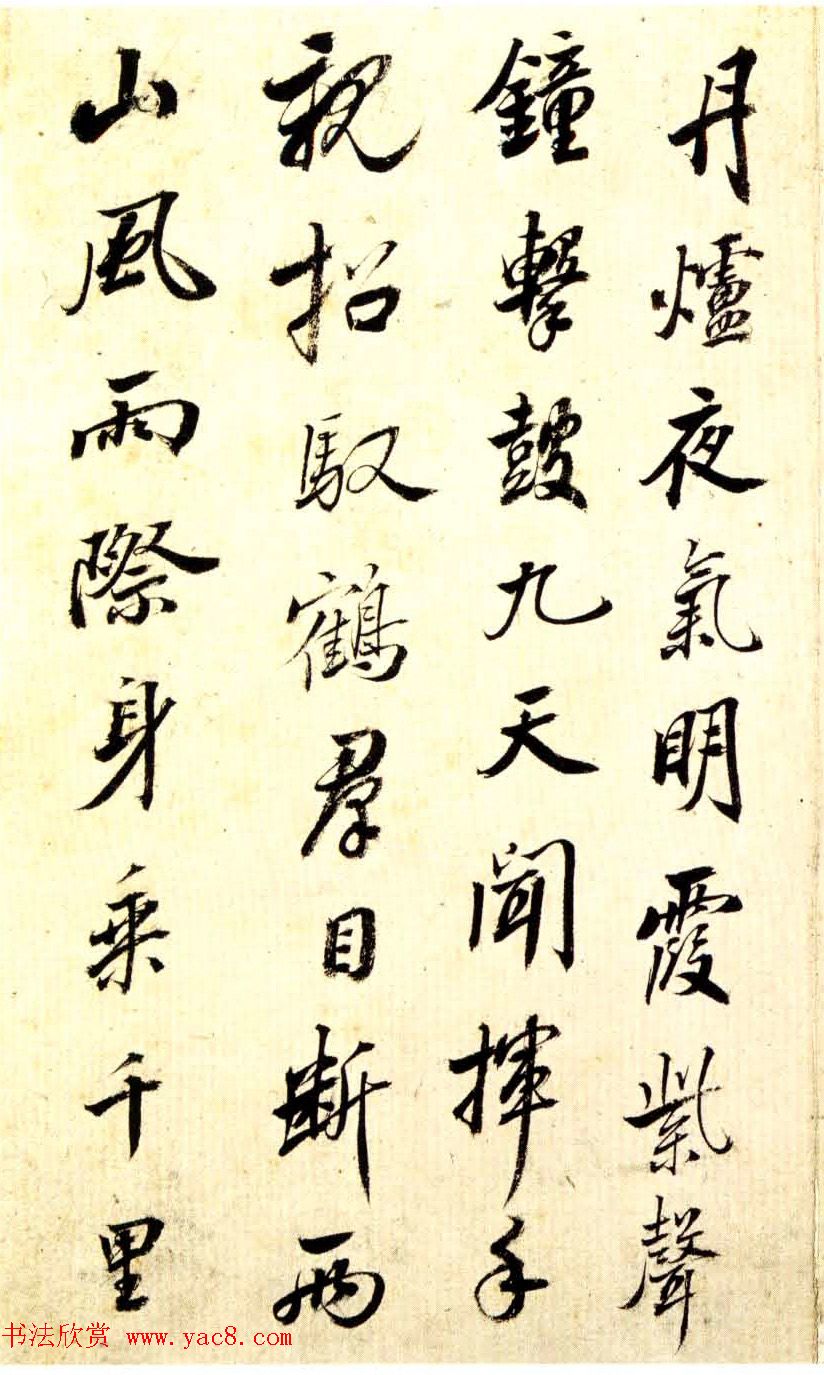 丹爐夜氣明霞紫聲
鐘擊鼓九天聞揮手
親招馭鶴群目斷兩
山風雨際身乘千里
书法欣赏 www.yac8.com